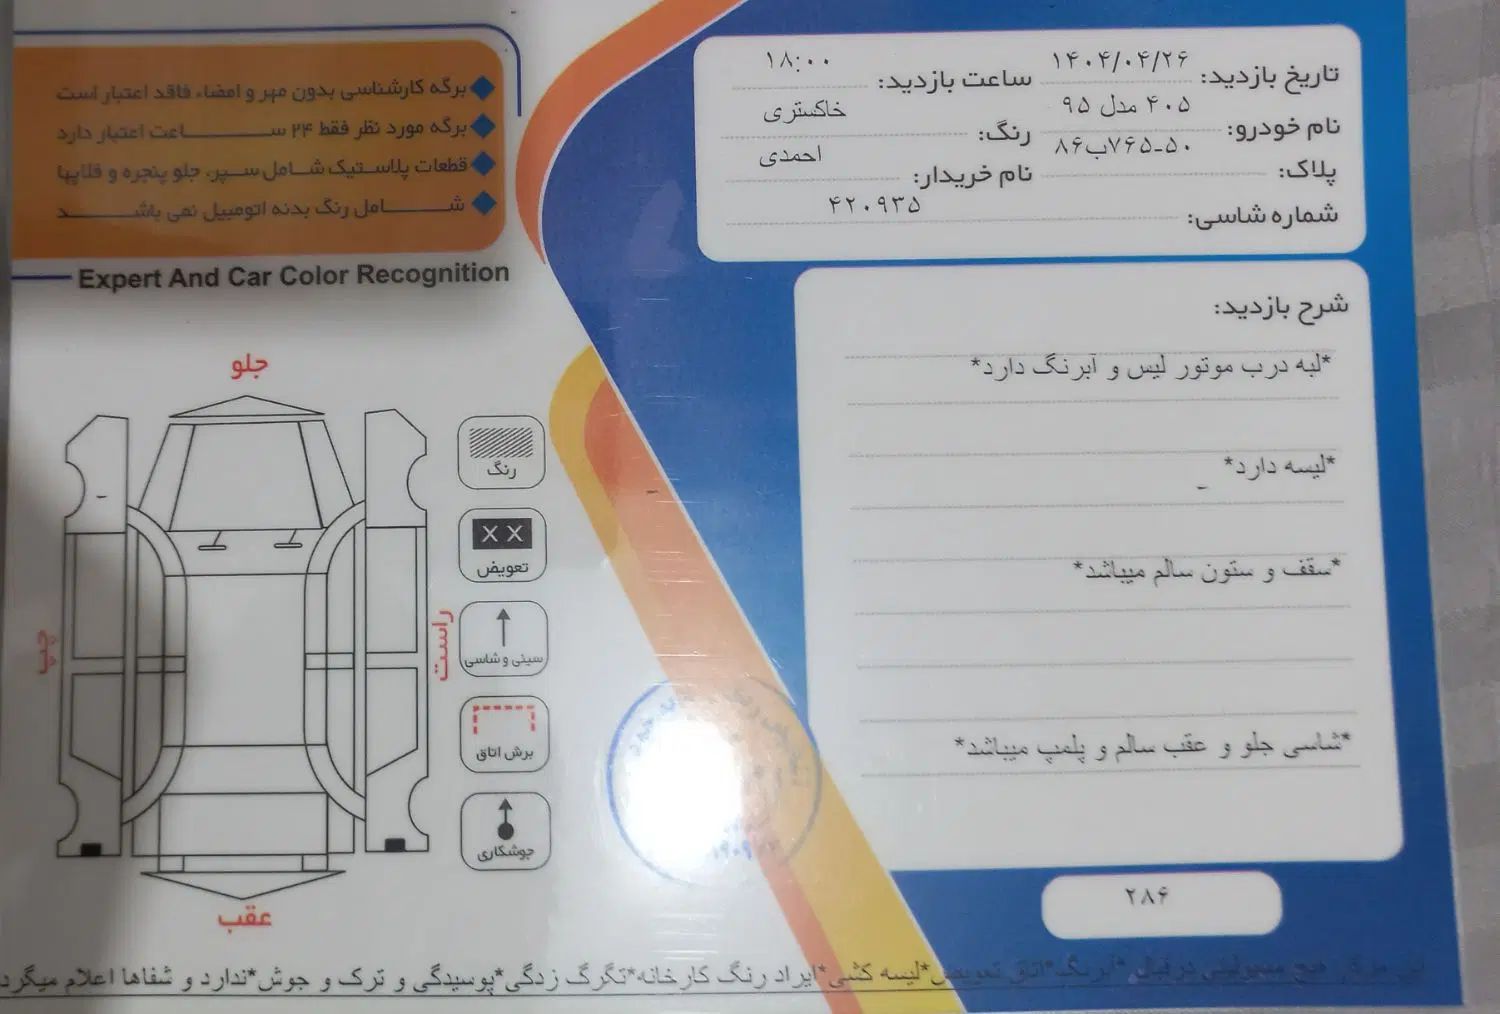 تاریخ بازدید: ۱۴۰۴/۰۴/۲۶ ساعت بازدید: ۱۸:۰۰
نام خودرو: ۴۰۵ مدل ۹۵ رنگ: خاکستری
پلاک: ۵۰-۷۶۵ب۸۶ نام خریدار: احمدی
شماره شاسی: ۴۲۰۹۳۵
شرح بازدید:
*لبه درب موتور لیس و آبرنگ دارد*
*لیسه دارد*
*سقف و ستون سالم میباشد*
*شاسی جلو و عقب سالم و پلمپ میباشد*
۲۸۶
برگه کارشناسی بدون مهر و امضاء فاقد اعتبار است
برگه مورد نظر فقط ۲۴ ساعت اعتبار دارد
قطعات پلاستیک شامل سپر، جلو پنجره و قلاپها
شامل رنگ بدنه اتومبیل نمی باشد
Expert And Car Color Recognition
جلو
رنگ
تعویض
سینی و شاسی
برش اتاق
جوشکاری
راست
چپ
عقب
این مرکز هیچ مسولیتی درقبال *آبرنگ*اتاق تعویض*لیسه کشی*ایراد رنگ کارخانه*تگرگ زدگی*پوسیدگی و ترک و جوش*ندارد و شفاها اعلام میگرد